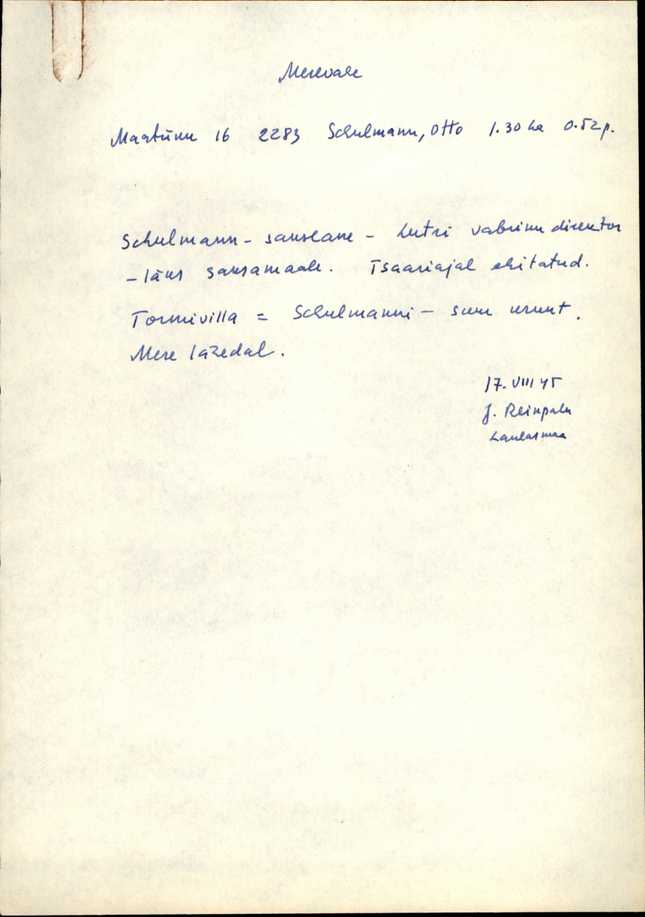 Merevale
Maatükk 16 2283 Schulmann, Otto 1.30 ha 0.52 p.
Schulmann - sakslane - Lutri vabriku direktor
- läks saksamaale. Tsaariajal ehitatud.
Tormivilla = Schulmanni - suur krunt.
Mere lähedal.
17. VIII 45
J. Reinpalu
Laulasmaa